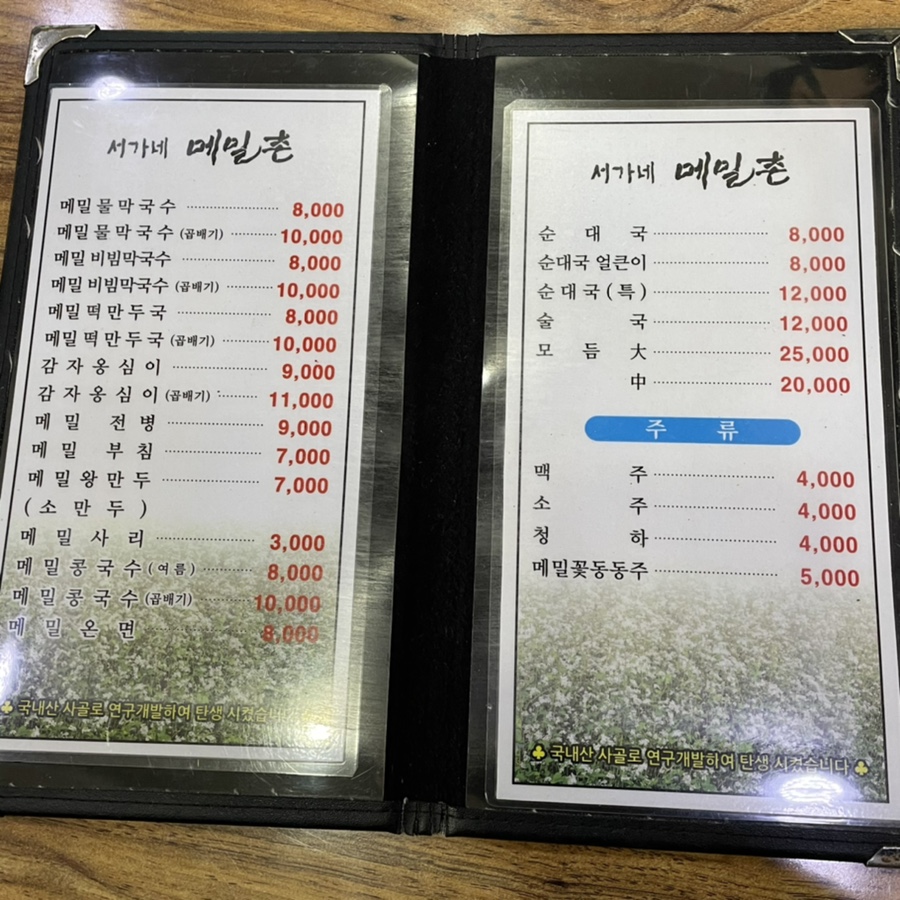 서가네 메밀촌
메밀물막국수 8,000
메밀물막국수(곱배기) 10,000
메밀비빔막국수 8,000
메밀비빔막국수(곱배기) 10,000
메밀떡만두국 8,000
메밀떡만두국(곱배기) 10,000
감자옹심이 9,000
감자옹심이(곱배기) 11,000
메밀 전병 9,000
메밀 부침 7,000
메밀왕만두 7,000
(소만두)
메밀사리 3,000
메밀콩국수(여름) 8,000
메밀콩국수(곱배기) 10,000
메밀온면 8,000
국내산 사골로 연구개발하여 탄생 시켰습니
서가네 메밀촌
순대국 8,000
순대국 얼큰이 8,000
순대국(특) 12,000
술국 12,000
모듬 大 25,000
中 20,000
주류
맥주 4,000
소주 4,000
청하 4,000
메밀꽃동동주 5,000
♣ 국내산 사골로 연구개발하여 탄생 시켰습니다 ♣